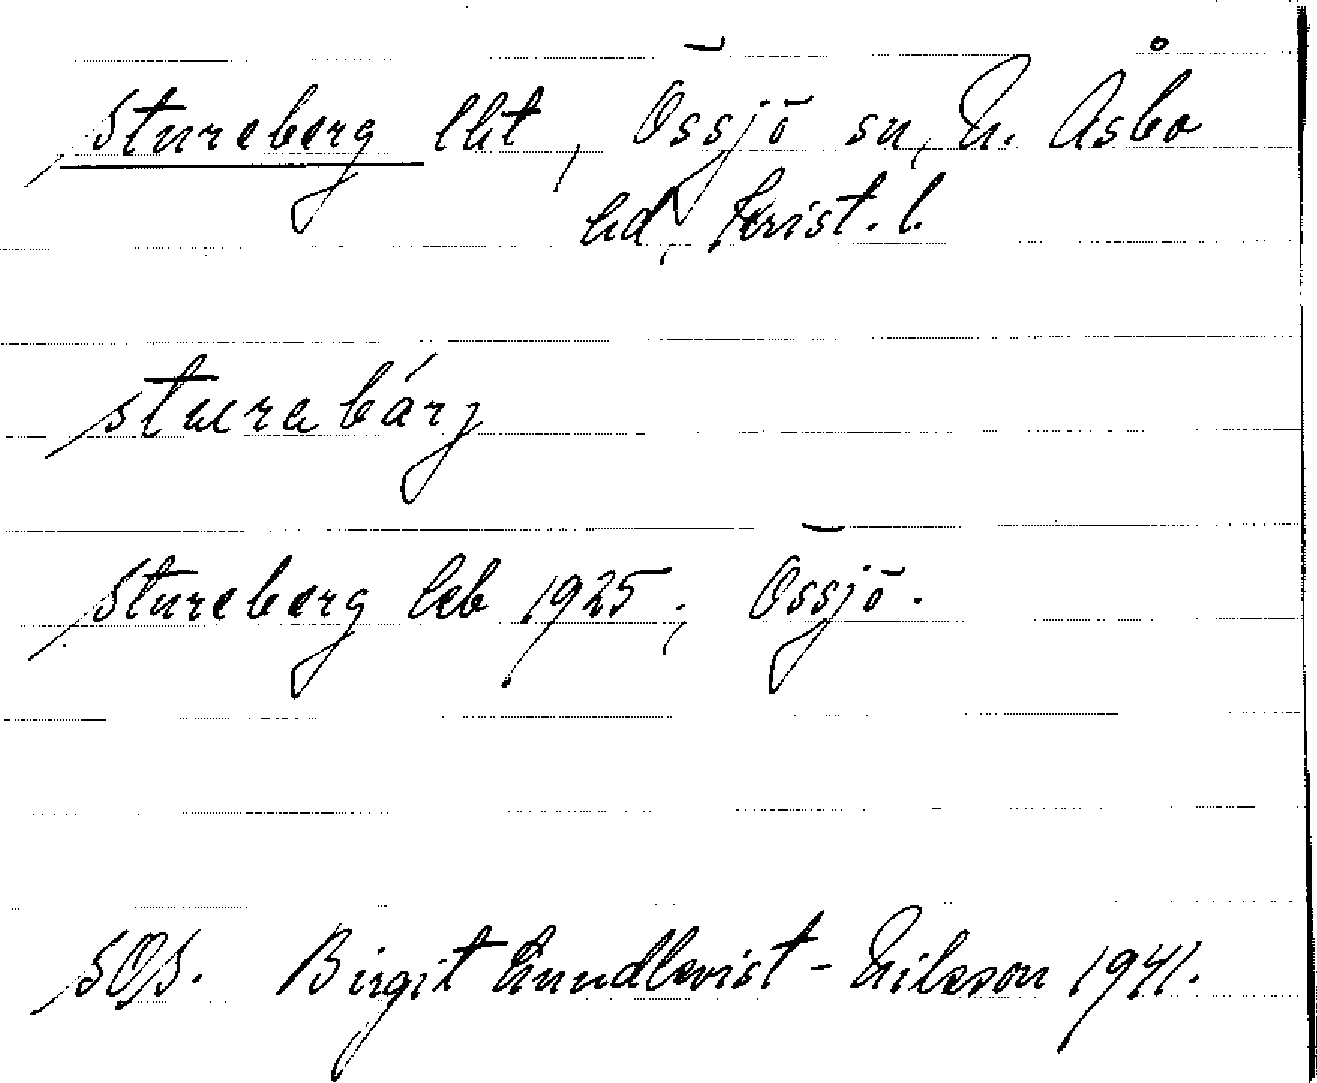 Stureberg lht, Össjö sn, N. Åsbo
hd, Krist. l.
sturabárj
Stureberg leb 1925; Össjö.
SOS. Birgit Lundkvist - Nilsson 1941.